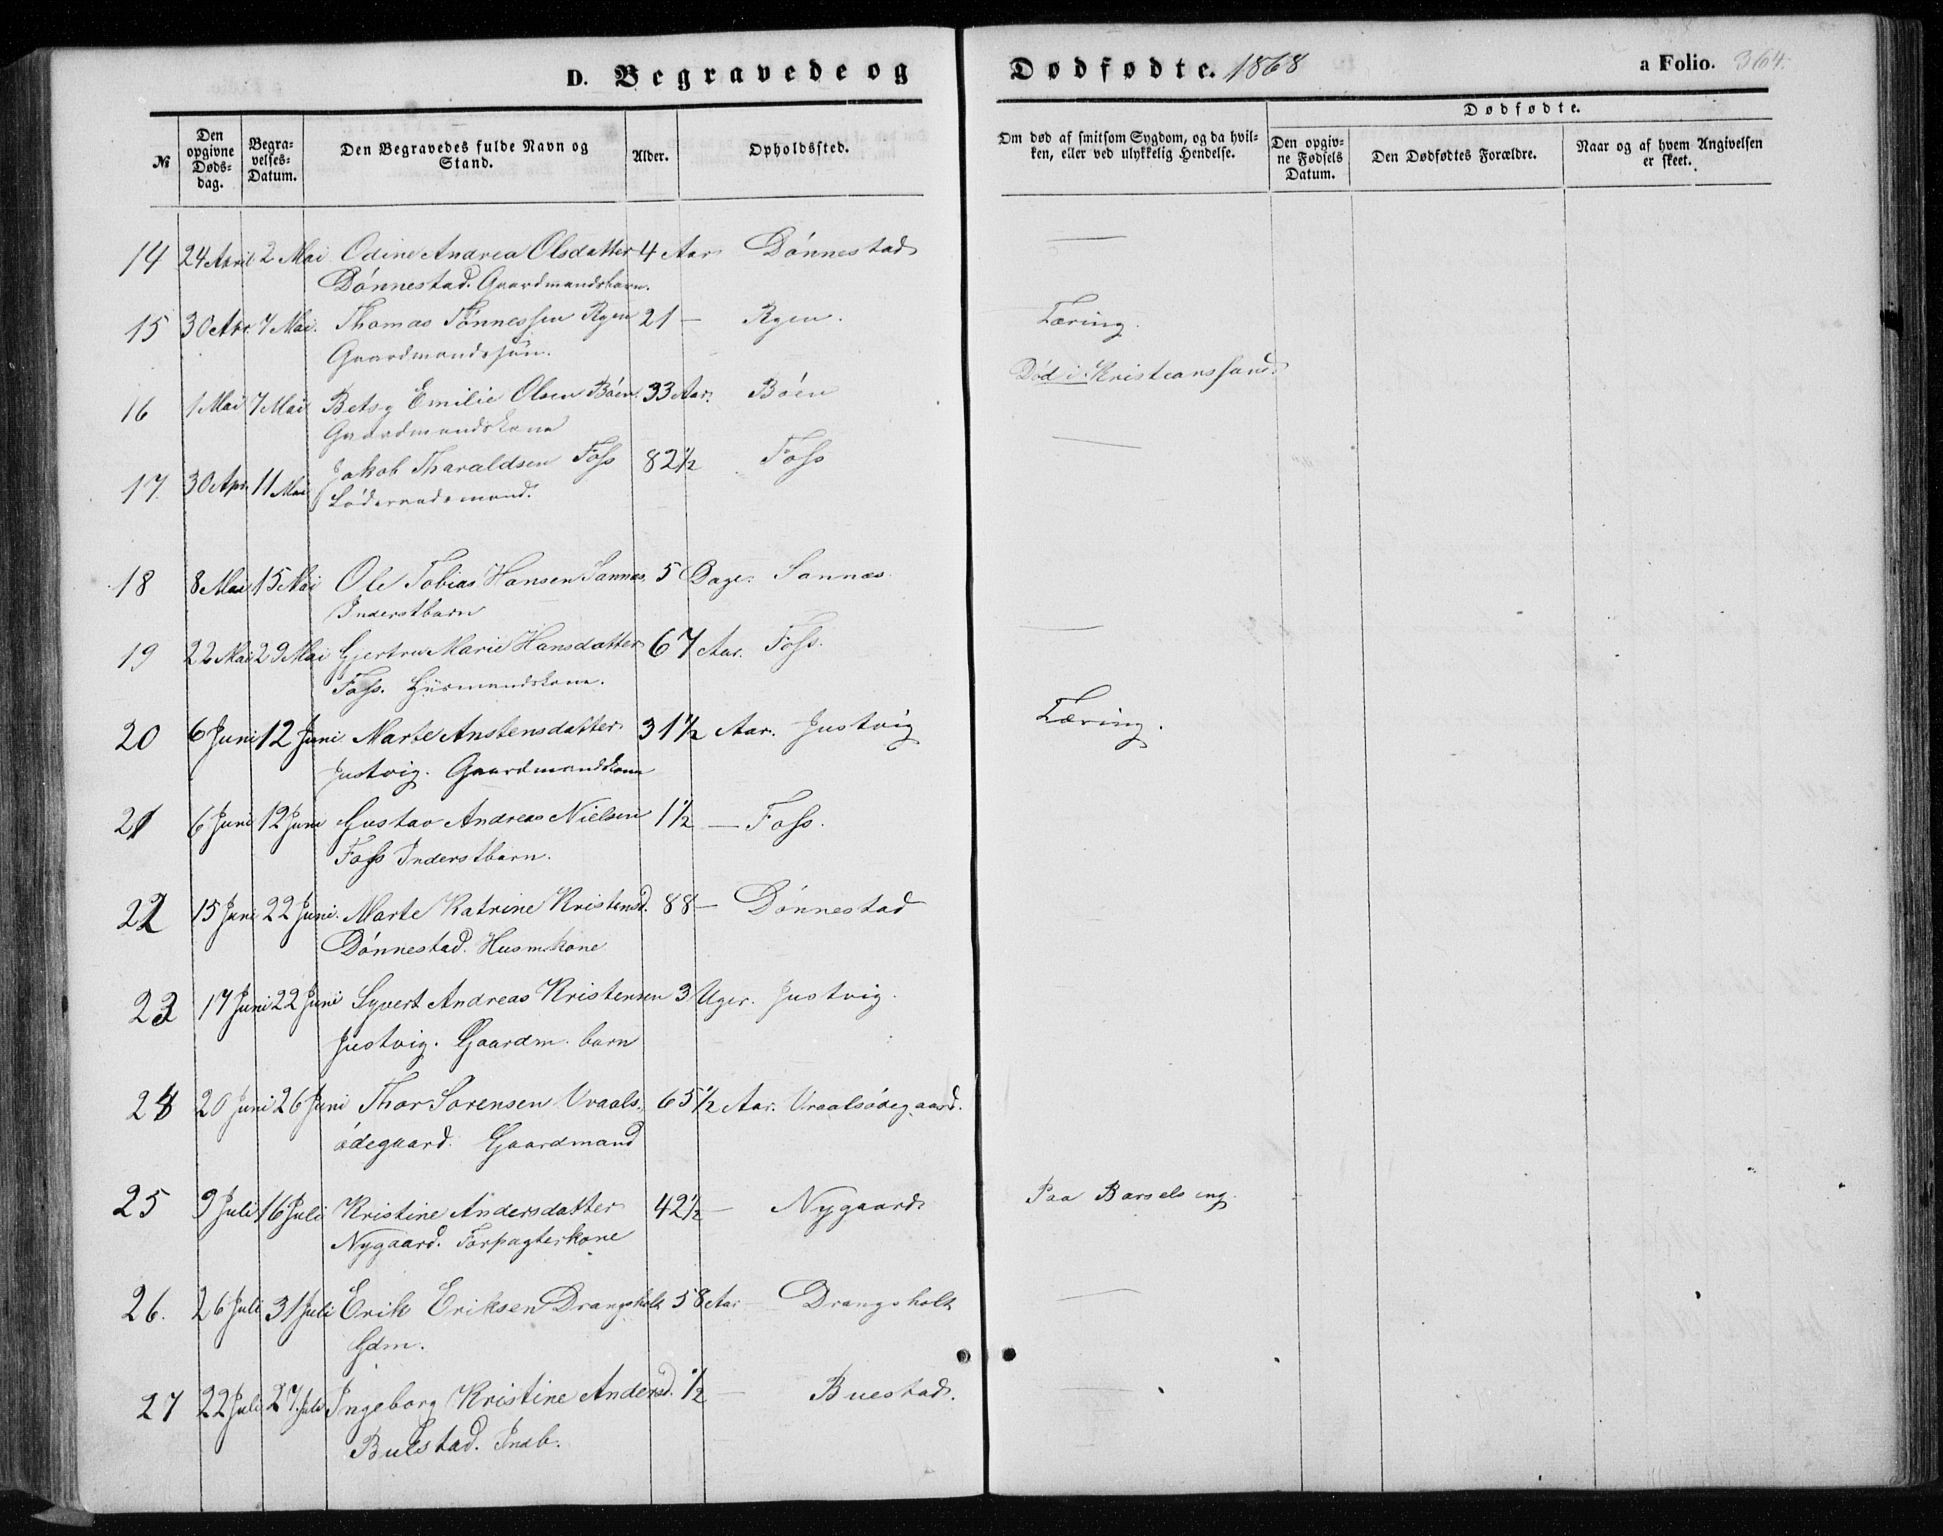 D. Begravede og Dødfødte. 1868 a Folio. 364.
Dødfødte.
№ Den opgivne Døds-dag. Begra-velses-Datum. Den Begravedes fulde Navn og Stand. Alder. Opholdssted. Om død af smitsom Sygdom, og da hvil-ken, eller ved ulykkelig Hendelse. Den opgiv-ne Fødsels Datum. Den Dødfødtes Forældre. Naar og af hvem Angivelsen er skeet.
14 24 April 2 Mai Odine Andrea Olsdatter 4 Aar Dønnestad —
Dønnestad. Gaardmandsbarn.
15 30 Apr. 7 Mai. Thomas Tønnessen Ryen 21 — Ryen. Tæring.
Gaardmandssøn.
16 1 Mai 7 Mai Betsy Emilie Olsen Bøen 33 Aar. Bøen Død i Kristianssand
Gaardmandskone
17. 30 Apr. 11 Mai Jakob Tharaldsen Foss 82 1/2 Foss —
Løderaadsmand.
18 8 Mai 15 Mai Ole Tobias Hansen Sannes 5 Dage. Sannes.
Inderstbarn
19 22 Mai 29 Mai Gjertru Marie Hansdatter 67 Aar. Foss. —
Foss. Huusmandskone.
20 6 Juni 12 Juni Marte Anstensdatter 31 1/2 Aar. Justvig Tæring.
Justvig. Gaardmandskone
21 6 Juni 12 Juni Gustav Andreas Nielsen 1 1/2 — Foss.
Foss Inderstbarn.
22 15 Juni 22 Juni Marte Katrine Kristensd. 88 — Dønnestad
Dønnestad. Husm.kone
23 17 Juni 22 Juni Syvert Andreas Kristensen 3 Uger. Justvig.
Justvig. Gaardm. barn
24 20 Juni 26 Juni Thor Sørensen Vraals- 65 1/2 Aar. Vraalsødegaard.
ødegaard. Gaardmand
25 9 Juli 16 Juli Kristine Andersdatter 42 1/2 — Nygaard Paa Barselseng.
Nygaard. Forpagterkone
26. 26 Juli 31 Juli Erik Eriksen Drangsholt 58 Aar Drangsholt —
Gdm.
27 22 Juli 27. Juli Ingeborg Kristine Andersd. 1/2 — Buestad.
Buestad. Indb.